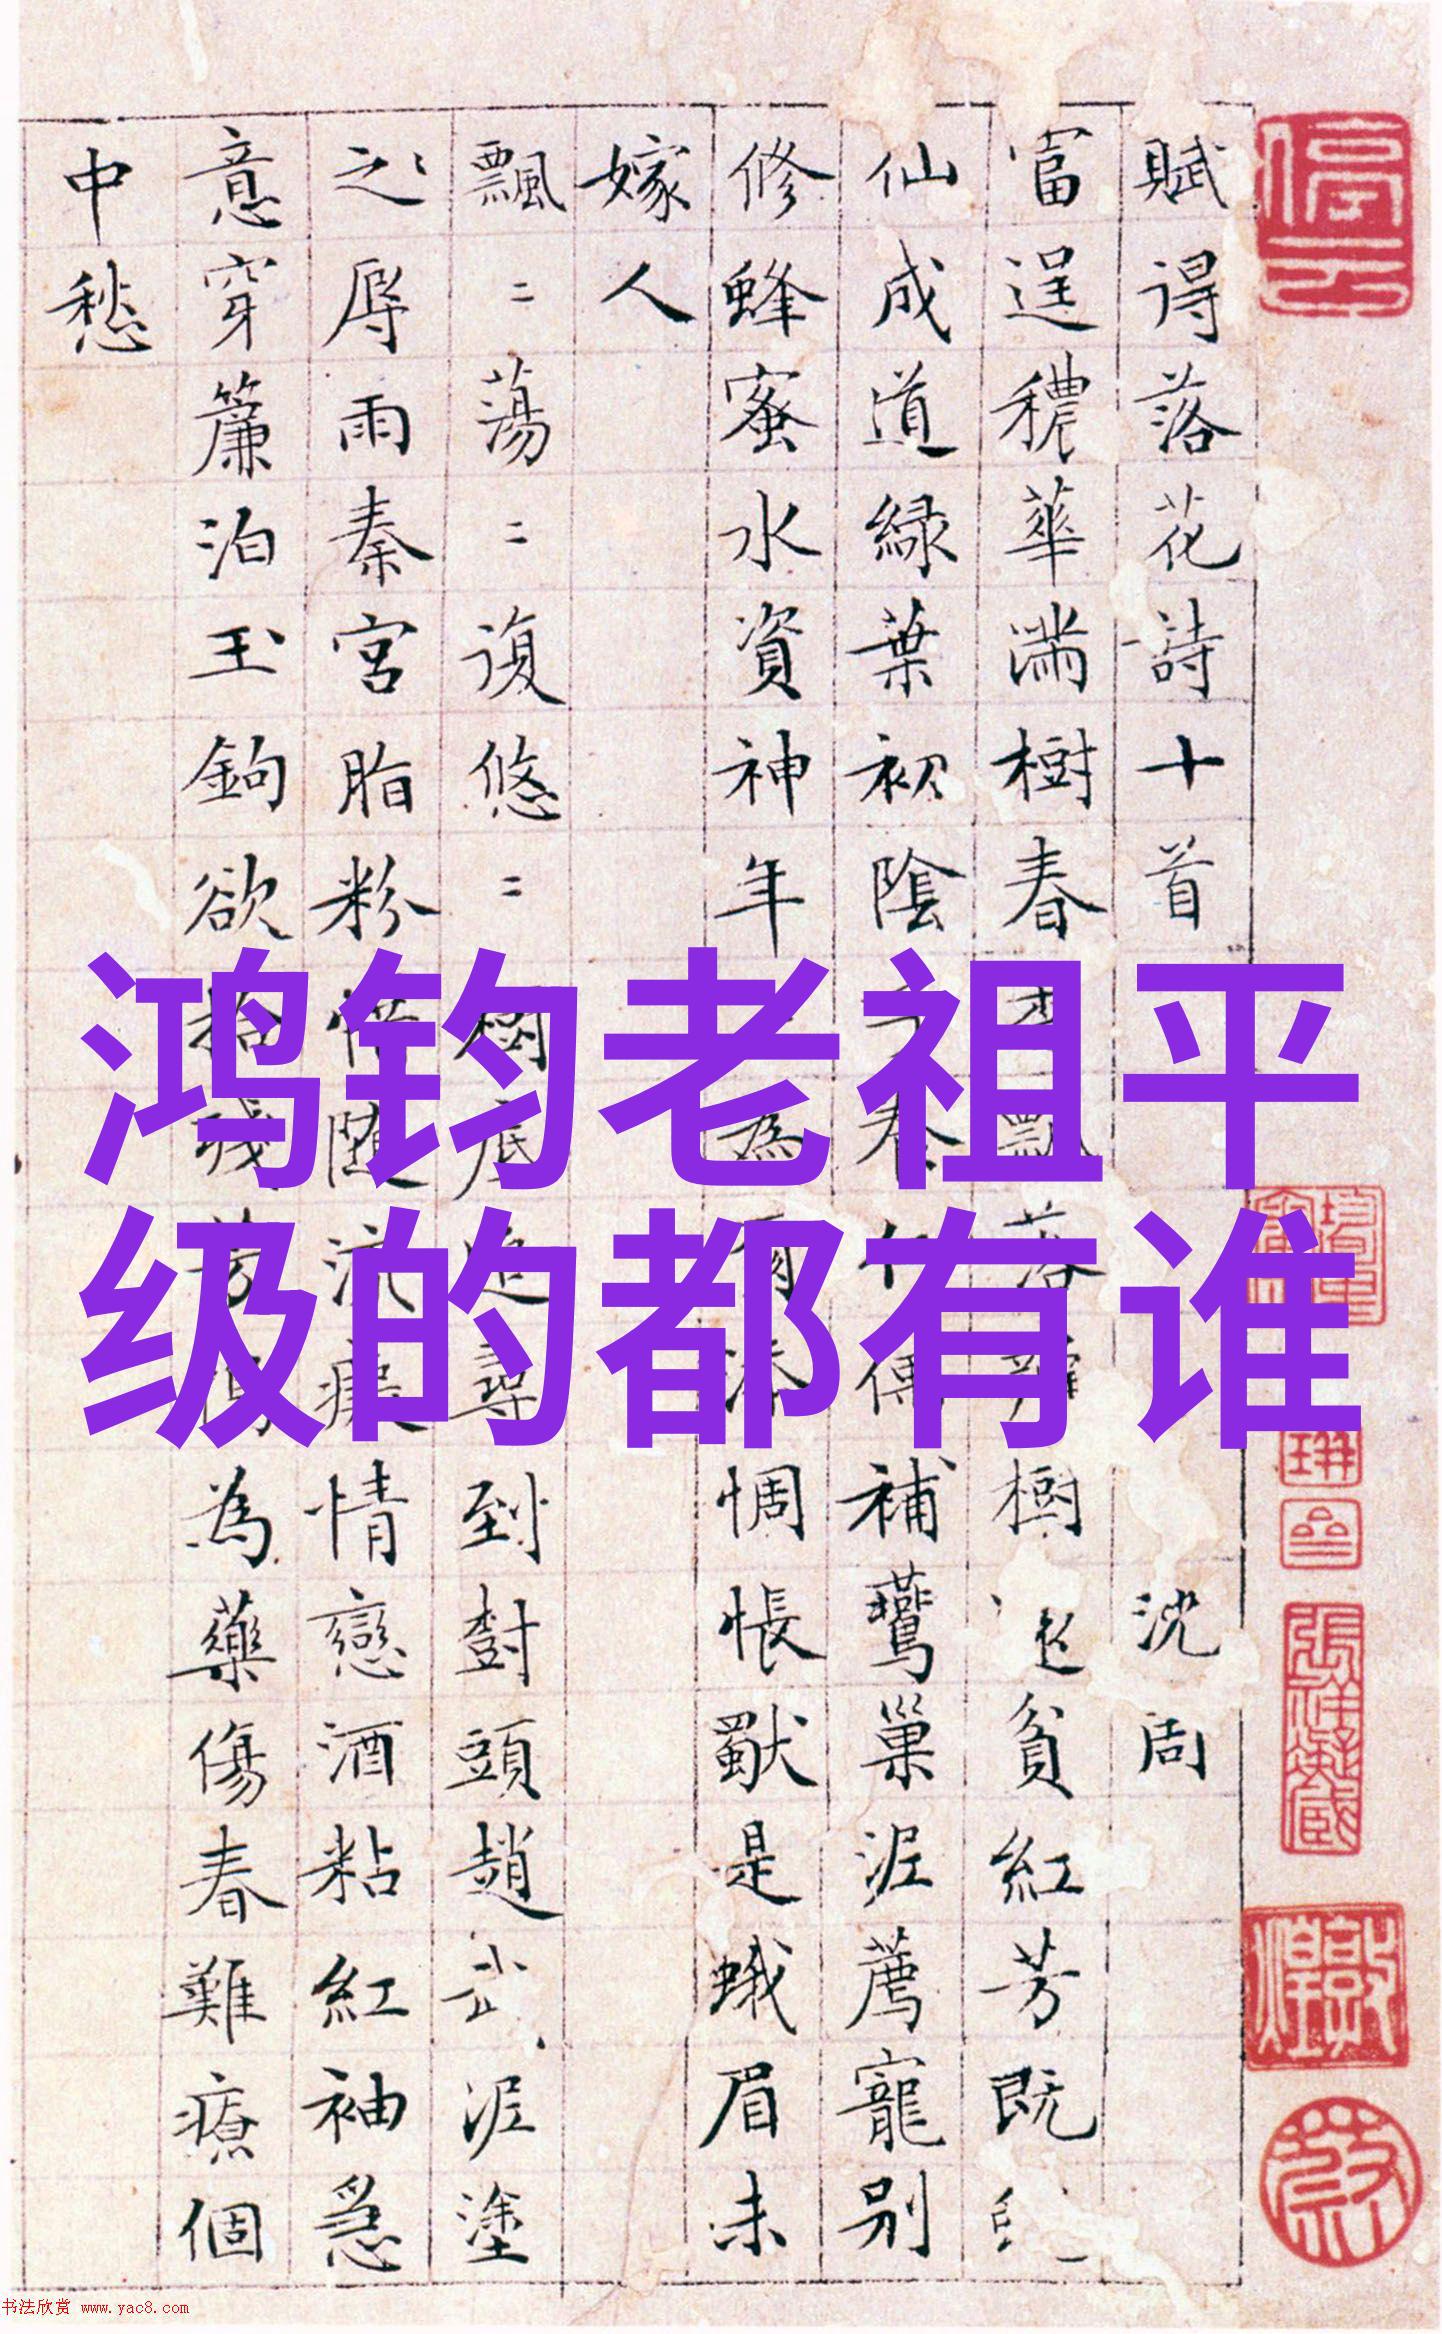 賦得落花詩十首 沈周
富逞穠華滿樹春 落 樹 貧紅芳既
仙成道綠葉初陰 補鸎巢泥薦寵別
修蜂蜜水資神年 為 惆悵獸是蛾眉未
嫁人
飄〻蕩〻復悠〻樹底追尋到樹頭趙 泥塗
之辱雨秦宮脂粉惜随流 情戀酒粘紅袖急
意穿簾泊玉鉤欲拾殘 為藥傷春難療個
中愁
鸿钧老祖平
级的都有谁
停云
书法欣赏 www.yac8.com